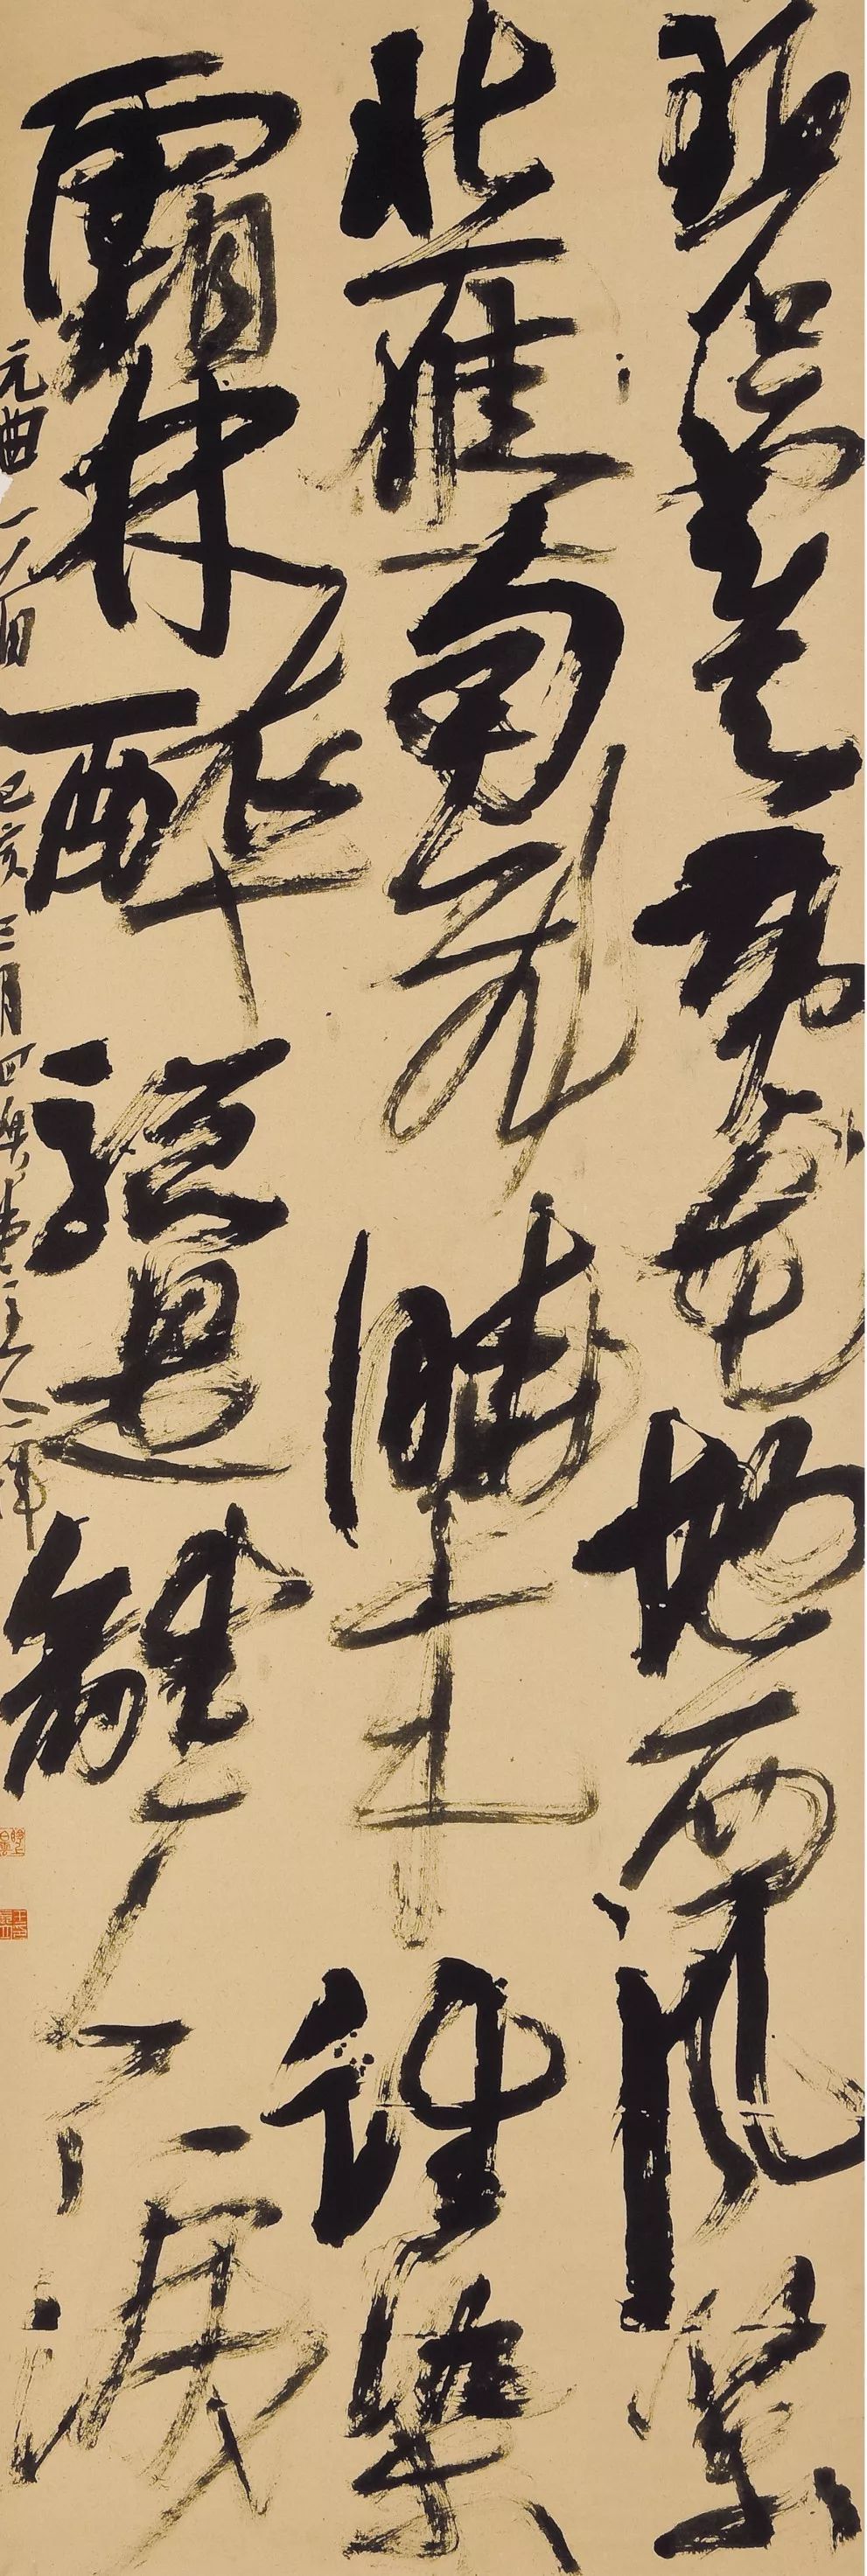 碧雲天黃花地西風緊
北雁南飛曉來誰染
霜林醉總是離人淚
元曲一首 己亥三月